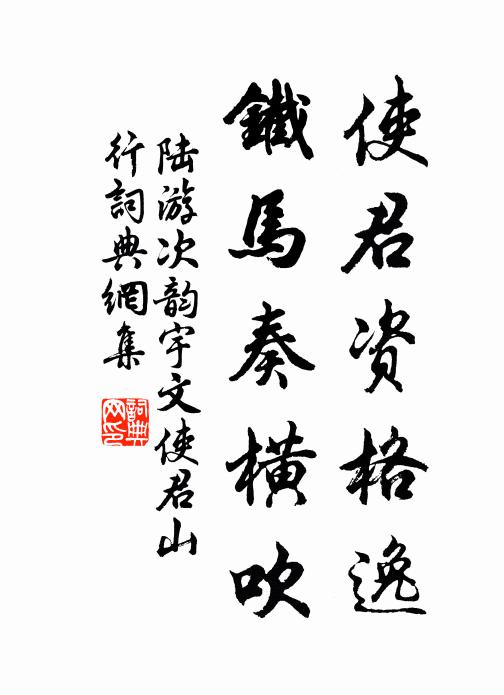 使君资格逸
鐵馬奏橫吹
陆游次韵宇文使君山
行詞典網集
詞典
网印